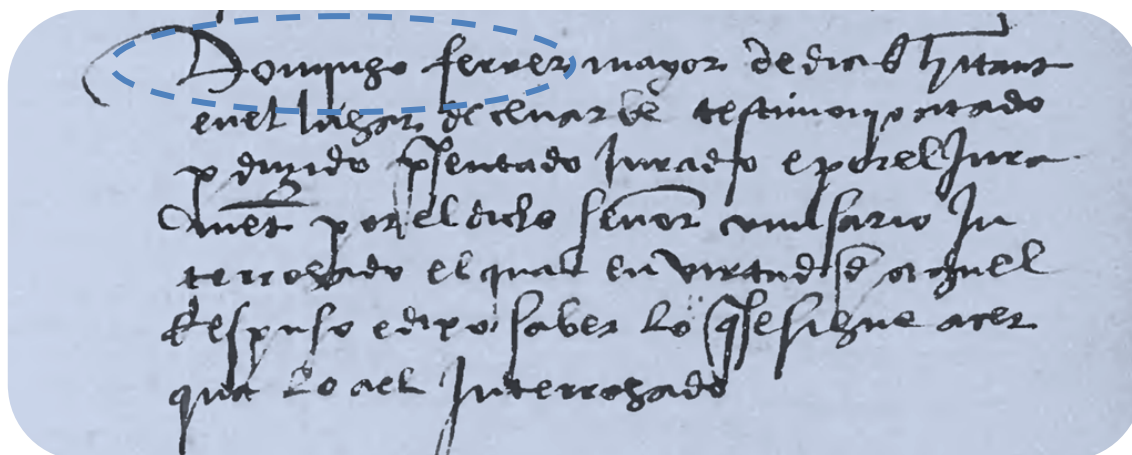 Domingo ferrer mayor de dias hitant
en el lugar de cluarbe testimonyo citado
p duzido psentado Jurado e por el Jura
ment por el dicho señor comisario In
terrogado el qual en virtud de aquel
despuso e dixo saber lo q se sigue acer
qua lo a el Interrogado